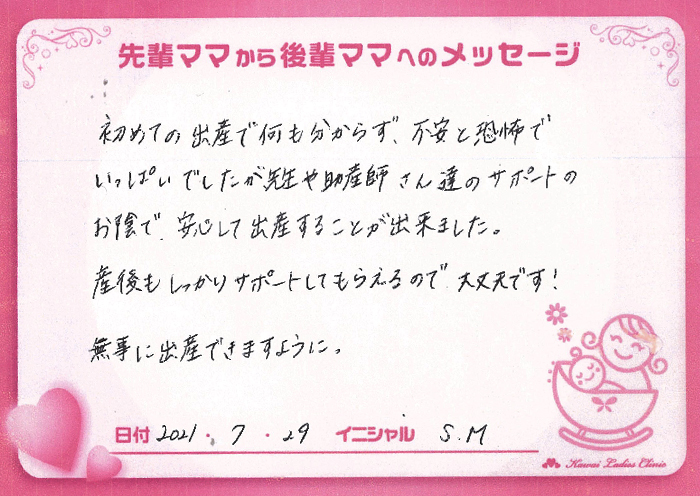 先輩ママから後輩ママへのメッセージ
初めての出産で何も分からず、不安と恐怖で
いっぱいでしたが先生や助産師さん達のサポートの
お陰で、安心して出産することが出来ました。
産後もしっかりサポートしてもらえるので大丈夫です!
無事に出産できますように。
日付 2021・7・29 イニシャル S.M
Kawai Ladies Clinic